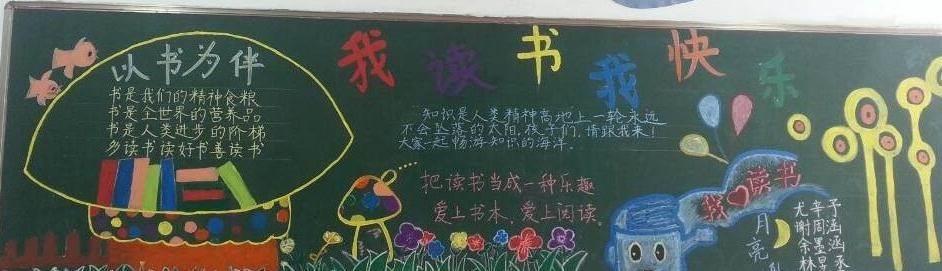 我读书我快乐
以书为伴
书是我们的精神食粮
书是全世界的营养品
书是人类进步的阶梯
多读书读好书善读书
知识是人类精神高地上一轮永远
不会坠落的太阳,孩子们,请跟我来!
大家一起畅游知识的海洋.
把读书当成一种乐趣
爱上书本、爱上阅读
我读书
月亮
尤辛予
谢周涵
余墨涵